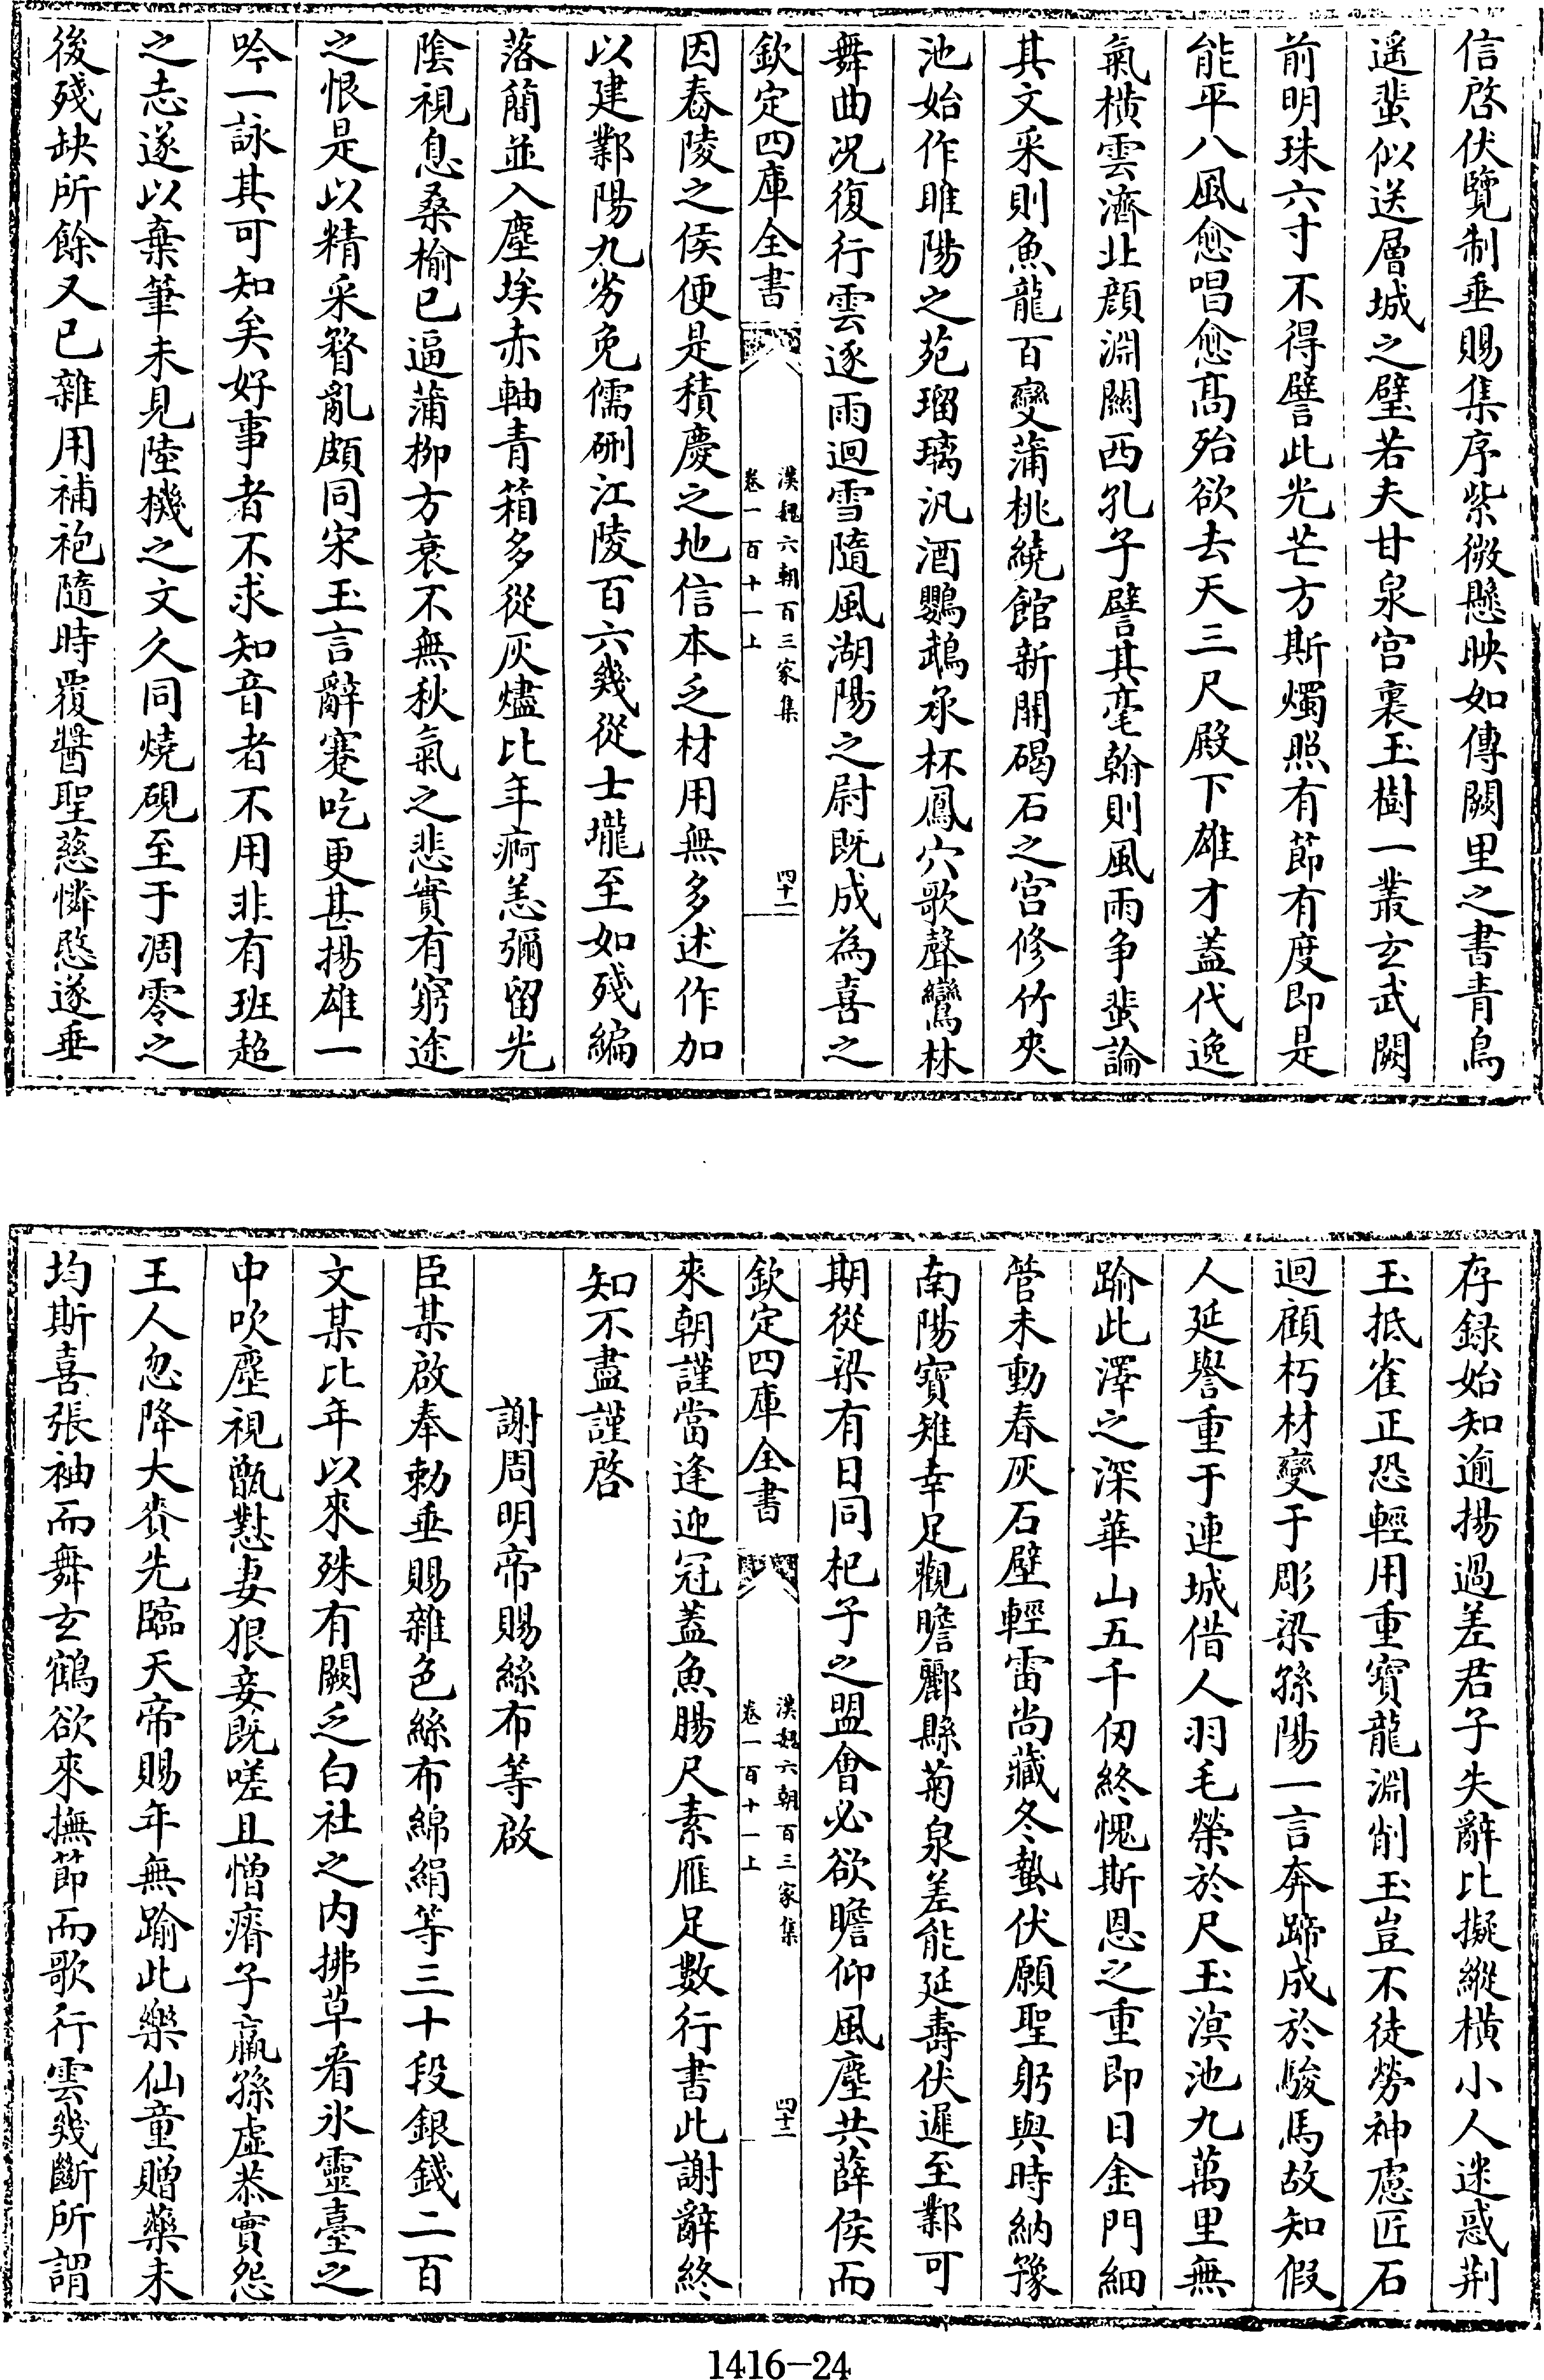 信啓伏覽制垂賜集序紫微懸映如傳闕里之書青鳥
遥蜚似送層城之璧若夫甘泉宫裏玉樹一叢玄武闕
前明珠六寸不得譬此光芒方斯燭照有節有度即是
能平八風愈唱愈髙殆欲去天三尺殿下雄才蓋代逸
氣横雲濟北顔淵闗西孔子譬其毫翰則風雨争蜚論
其文采則魚龍百變蒲桃繞館新開碣石之宫修竹夾
池始作睢陽之苑瑠璃汎酒鸚鵡承杯鳳穴歌聲鸞林
舞曲况復行雲逐雨迴雪隨風湖陽之尉既成為喜之
欽定四庫全書
漢魏六朝百三家集
卷一百十一上
四十一
因舂陵之侯便是積慶之地信本乏材用無多述作加
以建鄴陽九劣免儒硎江陵百六幾從士壠至如殘編
落簡並入塵埃赤軸青箱多從灰燼比年痾恙彌留光
陰視息桑榆已逼蒲柳方衰不無秋氣之悲實有窮途
之恨是以精采瞀亂頗同宋玉言辭蹇吃更甚揚雄一
吟一詠其可知矣好事者不求知音者不用非有班超
之志遂以棄筆未見陸機之文久同燒硯至于凋零之
後殘缺所餘又已雜用補袍隨時覆醬聖慈憐愍遂垂
存録始知逾揚過差君子失辭比擬縱横小人迷惑荆
玉抵雀正恐輕用重寳龍淵削玉豈不徒勞神慮匠石
迴顧朽材變于彫梁孫陽一言奔蹄成於駿馬故知假
人延譽重于連城借人羽毛榮於尺玉溟池九萬里無
踰此澤之深華山五千仞終愧斯恩之重即日金門細
管未動春灰石壁輕雷尚藏冬蟄伏願聖躬與時納豫
南陽寳雉幸足觀瞻酈縣菊泉差能延壽伏遲至鄴可
期從梁有日同杞子之盟會必欲瞻仰風塵共薛侯而
欽定四庫全書
漢魏六朝百三家集
卷一百十一上
四十二
來朝謹當逢迎冠蓋魚腸尺素雁足數行書此謝辭終
知不盡謹啓
謝周明帝賜絲布等啟
臣某啟奉勅垂賜雜色絲布綿絹等三十段銀錢二百
文某比年以來殊有闕乏白社之内拂草看氷靈臺之
中吹塵視甑懟妻狠妾既嗟且憎瘠子羸孫虚恭實怨
王人忽降大賚先臨天帝賜年無踰此樂仙童贈藥未
均斯喜張袖而舞玄鶴欲來撫節而歌行雲幾斷所謂
1416-24